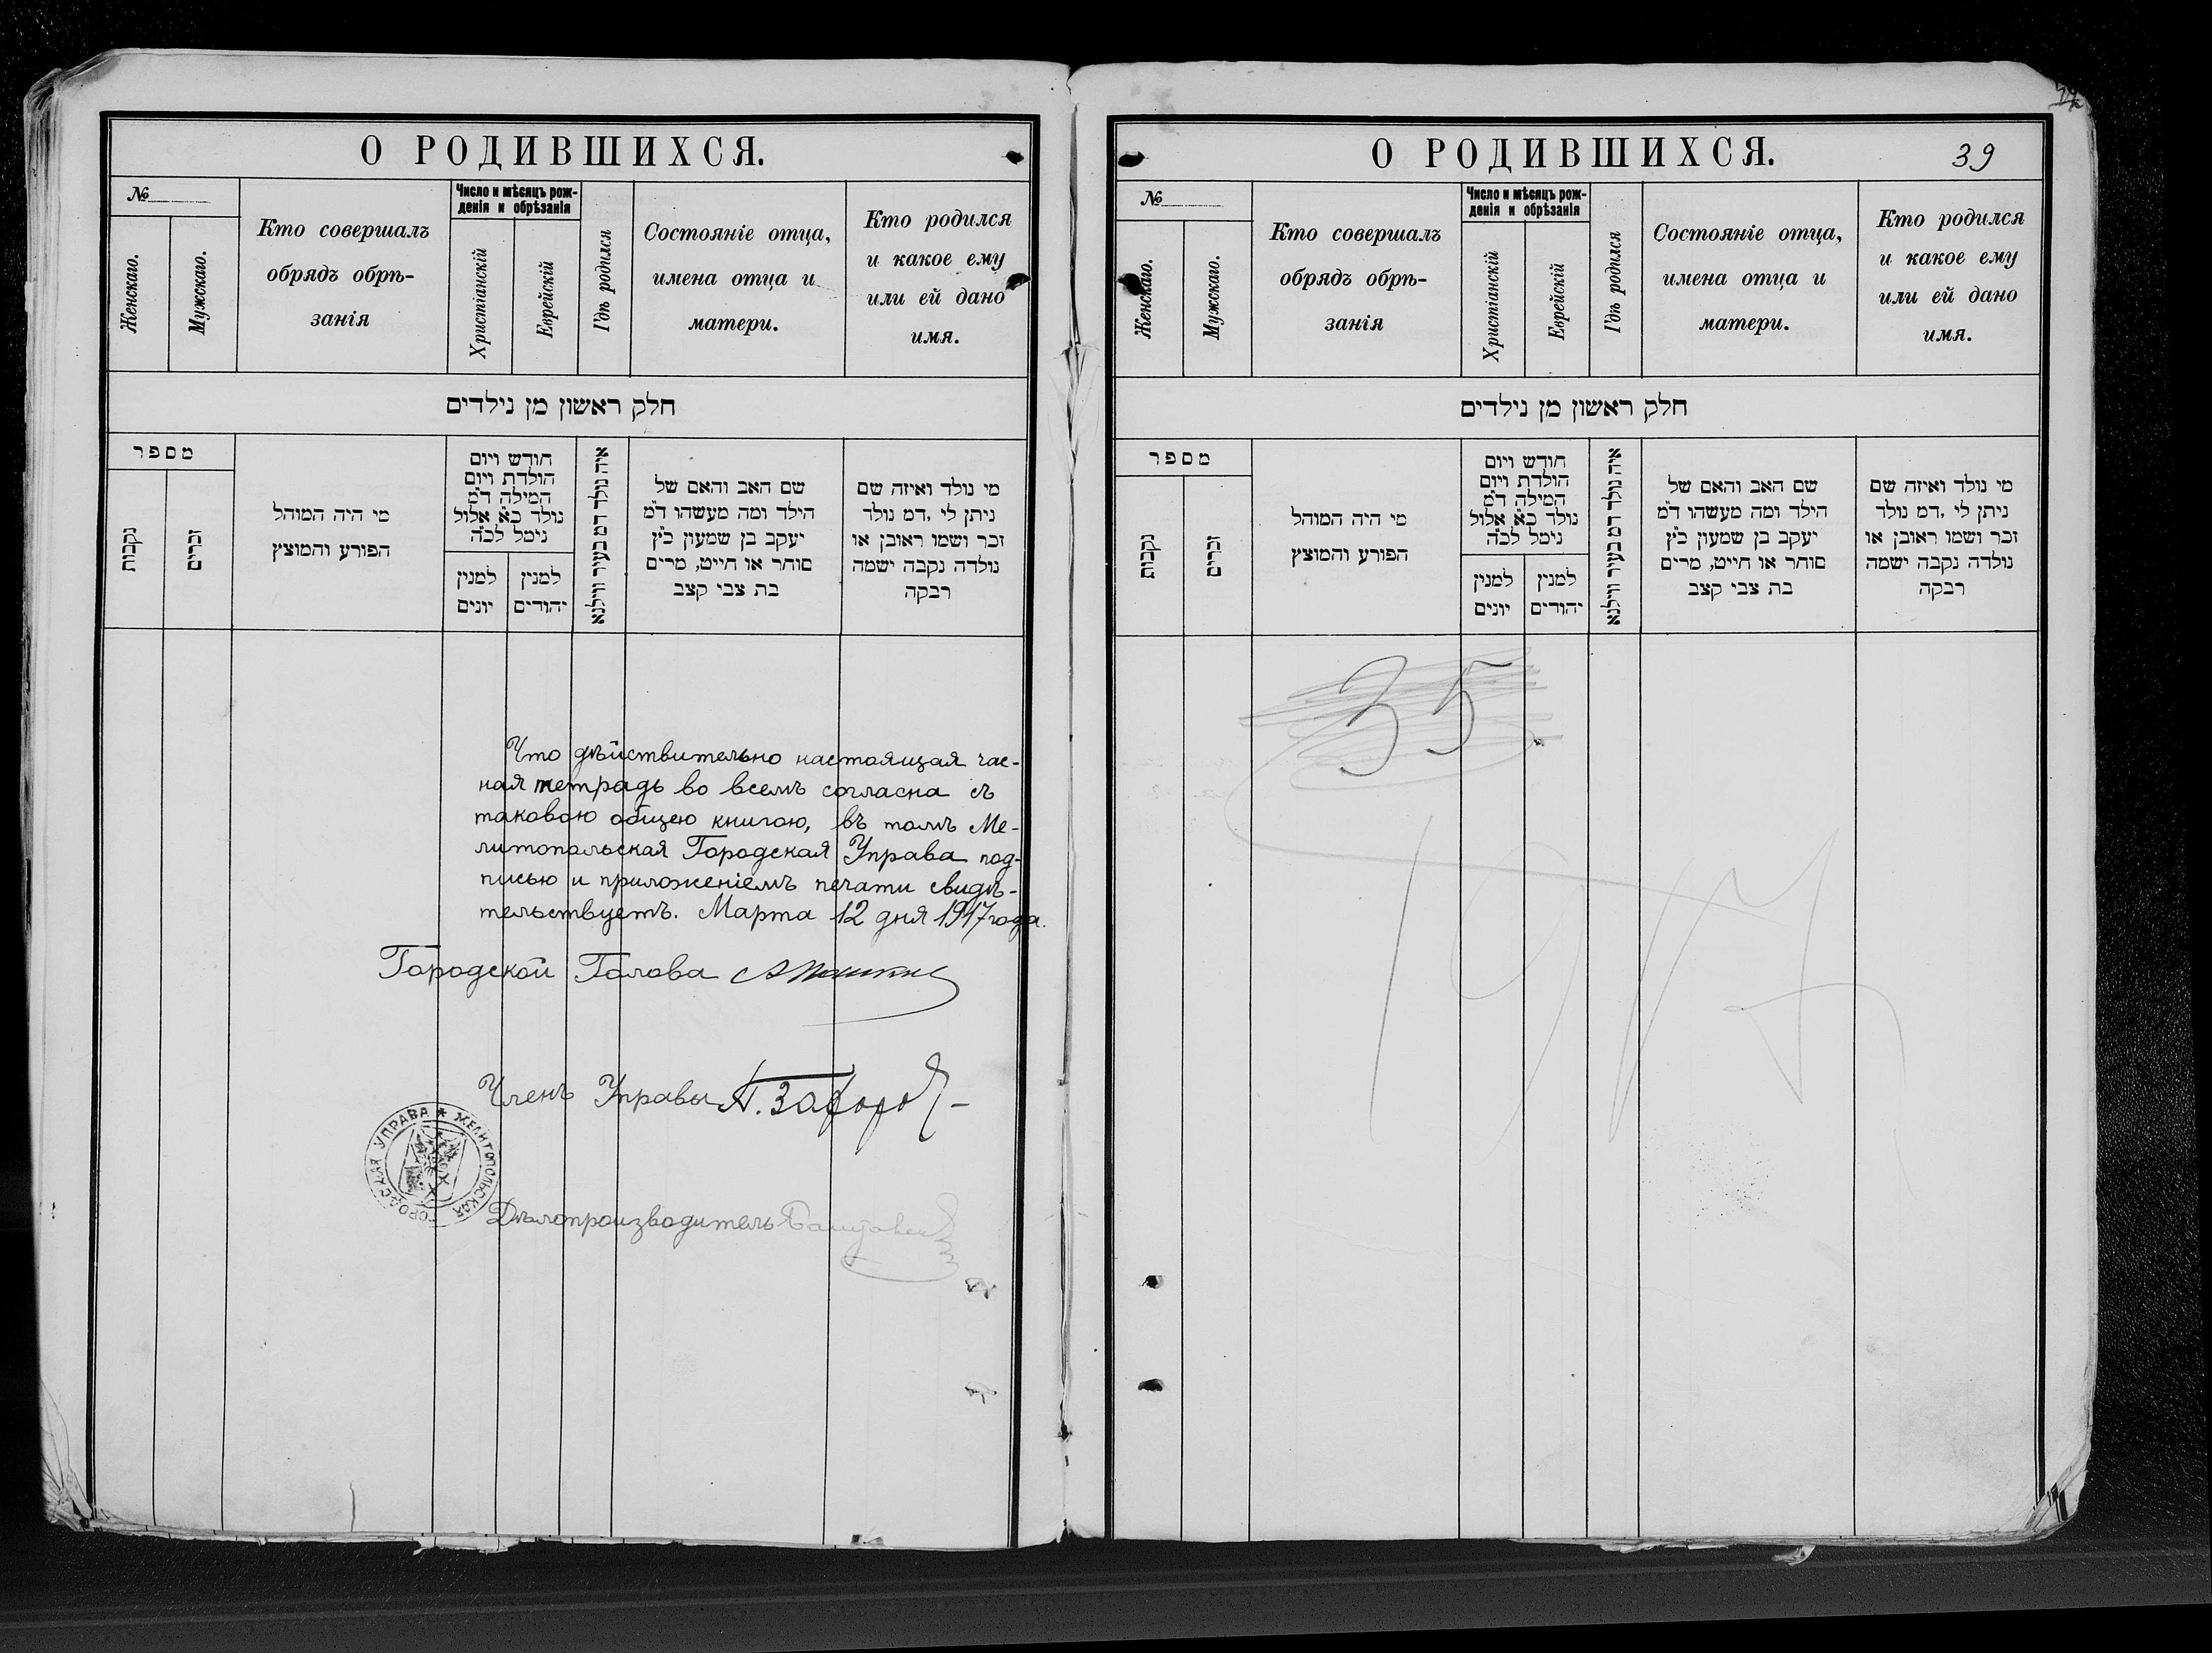 О РОДИВШИХСЯ.
№
Женскаго.
Мужскаго.
Кто совершалъ
обрядъ обрѣ-
занія
Число и мѣсяцъ рож-
денія и обрѣзанія
Христіанскій
Еврейскій
Гдѣ родился
Состояніе отца,
имена отца и
матери.
Кто родился
и какое ему
или ей дано
имя.
חלק ראשון מן נילדים
מספר
נקבות
זכרים
מי היה המוהל
הפורע והמוצץ
חודש ויום
הולדת ויום
המילה ד״מ
נולד כ״א אלול
נימל לכ״ה
למנין
יונים
למנין
יהודים
איה נולד דמ בעיר ווילנא
שם האב והאם של
הילד ומה מעשהו ד״מ
יעקב בן שמעון כ״ץ
סוחר או חייט, מרים
בת צבי קצב
מי נולד ואיזה שם
ניתן לי, דמ נולד
זכר ושמו ראובן או
נולדה נקבה ישמה
רבקה
Что дѣйствительно настоящая час-
ная тетрадь во всемъ согласна съ
таковою общею книгою, въ томъ Ме-
литопольская Городская Управа под-
писью и приложеніемъ печати свидѣ-
тельствуетъ. Марта 12 дня 1917 года.
Городской Голова
Членъ Управы
МЕЛИТОПОЛЬСКАЯ ГОРОДСКАЯ УПРАВА
Дѣлопроизводитель
О РОДИВШИХСЯ.
39
№
Женскаго.
Мужскаго.
Кто совершалъ
обрядъ обрѣ-
занія
Число и мѣсяцъ рож-
денія и обрѣзанія
Христіанскій
Еврейскій
Гдѣ родился
Состояніе отца,
имена отца и
матери.
Кто родился
и какое ему
или ей дано
имя.
חלק ראשון מן נילדים
מספר
נקבות
זכרים
מי היה המוהל
הפורע והמוצץ
חודש ויום
הולדת ויום
המילה ד״מ
נולד כ״א אלול
נימל לכ״ה
למנין
יונים
למנין
יהודים
איה נולד דמ בעיר ווילנא
שם האב והאם של
הילד ומה מעשהו ד״מ
יעקב בן שמעון כ״ץ
סוחר או חייט, מרים
בת צבי קצב
מי נולד ואיזה שם
ניתן לי, דמ נולד
זכר ושמו ראובן או
נולדה נקבה ישמה
רבקה
35